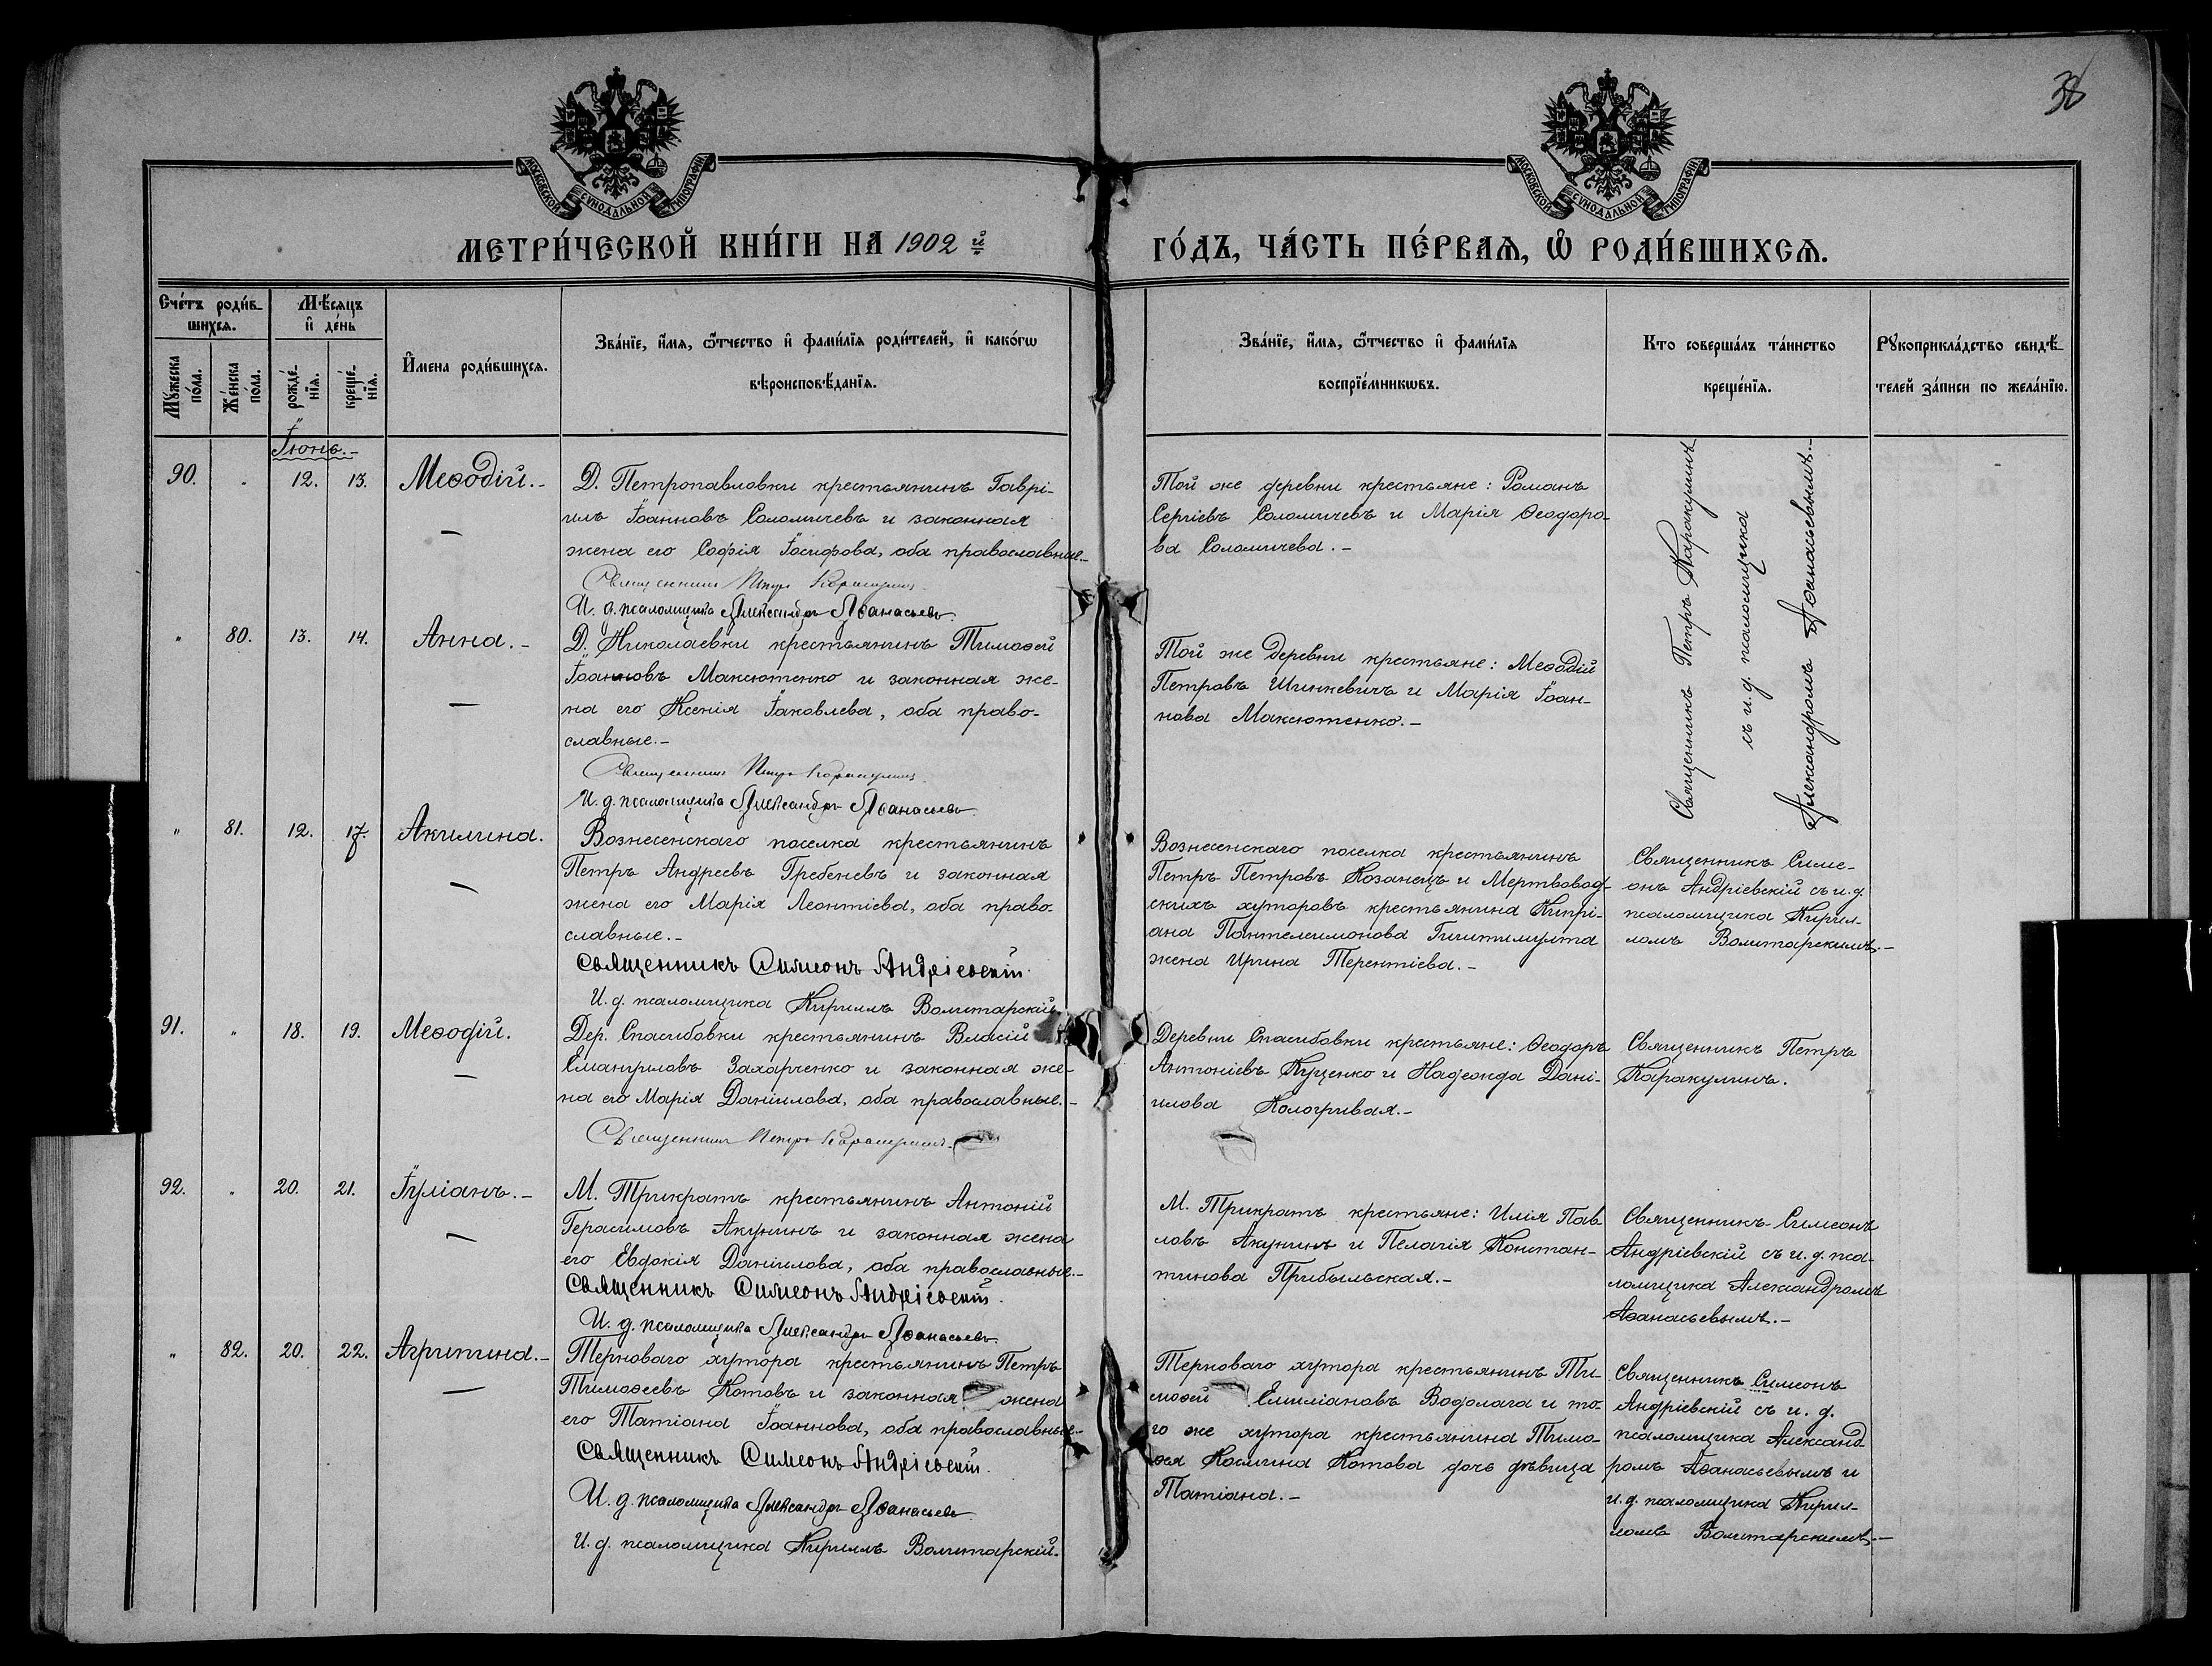 38
МОСКОВСКОЙ СѴНОДАЛЬНОЙ ТИПОГРАФІИ
МОСКОВСКОЙ СѴНОДАЛЬНОЙ ТИПОГРАФІИ
МЕТРИ́ЧЕСКОЙ КНИ́ГИ НА 1902й
ГО́ДЪ, ЧА́СТЬ ПЕ́РВАѦ, Ѡ҆ РОДИ́ВШИХСѦ.
Сче́тъ роди́в-
шихсѧ.
Мѣ́сѧцъ
и҆ де́нь
Мꙋ́жеска
по́ла.
Же́нска
по́ла.
рожде́-
нїѧ.
креще́-
нїѧ.
И҆мена роди́вшихсѧ.
Зва́нїе, и҆́мѧ, ѻ҆́тчество и҆ фами́лїѧ роди́телей, и҆ како́гѡ
вѣроисповѣ́данїѧ.
Зва́нїе, и҆́мѧ, ѻ҆́тчество и҆ фами́лїѧ
воспрїе́мникѡвъ.
Кто соверша́лъ та́инство
креще́нїѧ.
Рꙋкоприкла́дство свидѣ́-
телей за́писи по жела́нїю.
Іюнь.-
90. „ 12. 13. Меѳодій.-
Д. Петропавловки крестьянинъ Гаврі-
илъ Іоанновъ Соломичевъ и законная
жена его Софія Іосифова, оба православные.-
Священникъ Петръ Каракулинъ
И. д. псаломщика Александръ Аѳанасьевъ.
Той же деревни крестьяне: Романъ
Сергіевъ Соломичевъ и Марія Ѳеодоро-
ва Соломичева.-
Священникъ Петръ Каракулинъ
съ и. д. псаломщика
Александромъ Аѳанасьевымъ.-
„ 80. 13. 14. Анна.-
Д. Николаевки крестьянинъ Тимоѳей
Іоанновъ Максютенко и законная же-
на его Ксенія Іаковлева, оба право-
славные.-
Священникъ Петръ Каракулинъ
И. д. псаломщика Александръ Аѳанасьевъ.
Той же деревни крестьяне: Меѳодій
Петровъ Шинкевичъ и Марія Іоан-
нова Максютенко.-
„ 81. 12. 17. Акилина.
Вознесенскаго поселка крестьянинъ
Петръ Андреевъ Гребеневъ и законная
жена его Марія Леонтіева, оба право-
славные.-
Священникъ Симеонъ Андріевскій.
И. д. псаломщика Кириллъ Волитарскій.
Вознесенскаго поселка крестьянинъ
Петръ Петровъ Козанецъ и Мертвовод-
скихъ хуторовъ крестьянина Кипрі-
ана Пантелеимонова жена
Ирина Терентіева.-
Священникъ Симе-
онъ Андріевскій съ и. д.
псаломщика Кирил-
ломъ Волитарскимъ.-
91. „ 18. 19. Меѳодій.
Дер. Спасибовки крестьянинъ Власій
Емануиловъ Захарченко и законная же-
на его Марія Даніилова, оба православные.-
Священникъ Петръ Каракулинъ.
Деревни Спасибовки крестьяне: Ѳеодоръ
Антоніевъ Куценко и Надежда Дані-
илова Кологривая.-
Священникъ Петръ
Каракулинъ.
92. „ 20. 21. Іуліанъ.-
М. Трикратъ крестьянинъ Антоній
Герасимовъ Акунинъ и законная жена
его Евдокія Даніилова, оба православные.-
Священникъ Симеонъ Андріевскій.
И. д. псаломщика Александръ Аѳанасьевъ.
М. Трикратъ крестьяне: Илія Пав-
ловъ Акунинъ и Пелагія Констан-
тинова Прибыльская.-
Священникъ Симеонъ
Андріевскій съ и. д. пса-
ломщика Александромъ
Аѳанасьевымъ.-
„ 82. 20. 22. Агрипина.-
Терноваго хутора крестьянинъ Петръ
Тимоѳеевъ Котовъ и законная жена
его Татіана Іоаннова, оба православные.-
Священникъ Симеонъ Андріевскій.
И. д. псаломщика Александръ Аѳанасьевъ.
И. д. псаломщика Кириллъ Волитарскій.
Терноваго хутора крестьянинъ Ти-
моѳей Емиліановъ Водолага и то-
го же хутора крестьянина Тимо-
ѳея Космина Котова дочь дѣвица
Татіана.-
Священникъ Симеонъ
Андріевскій съ и. д.
псаломщика Александ-
ромъ Аѳанасьевымъ и
и. д. псаломщика Кирил-
ломъ Волитарскимъ.-